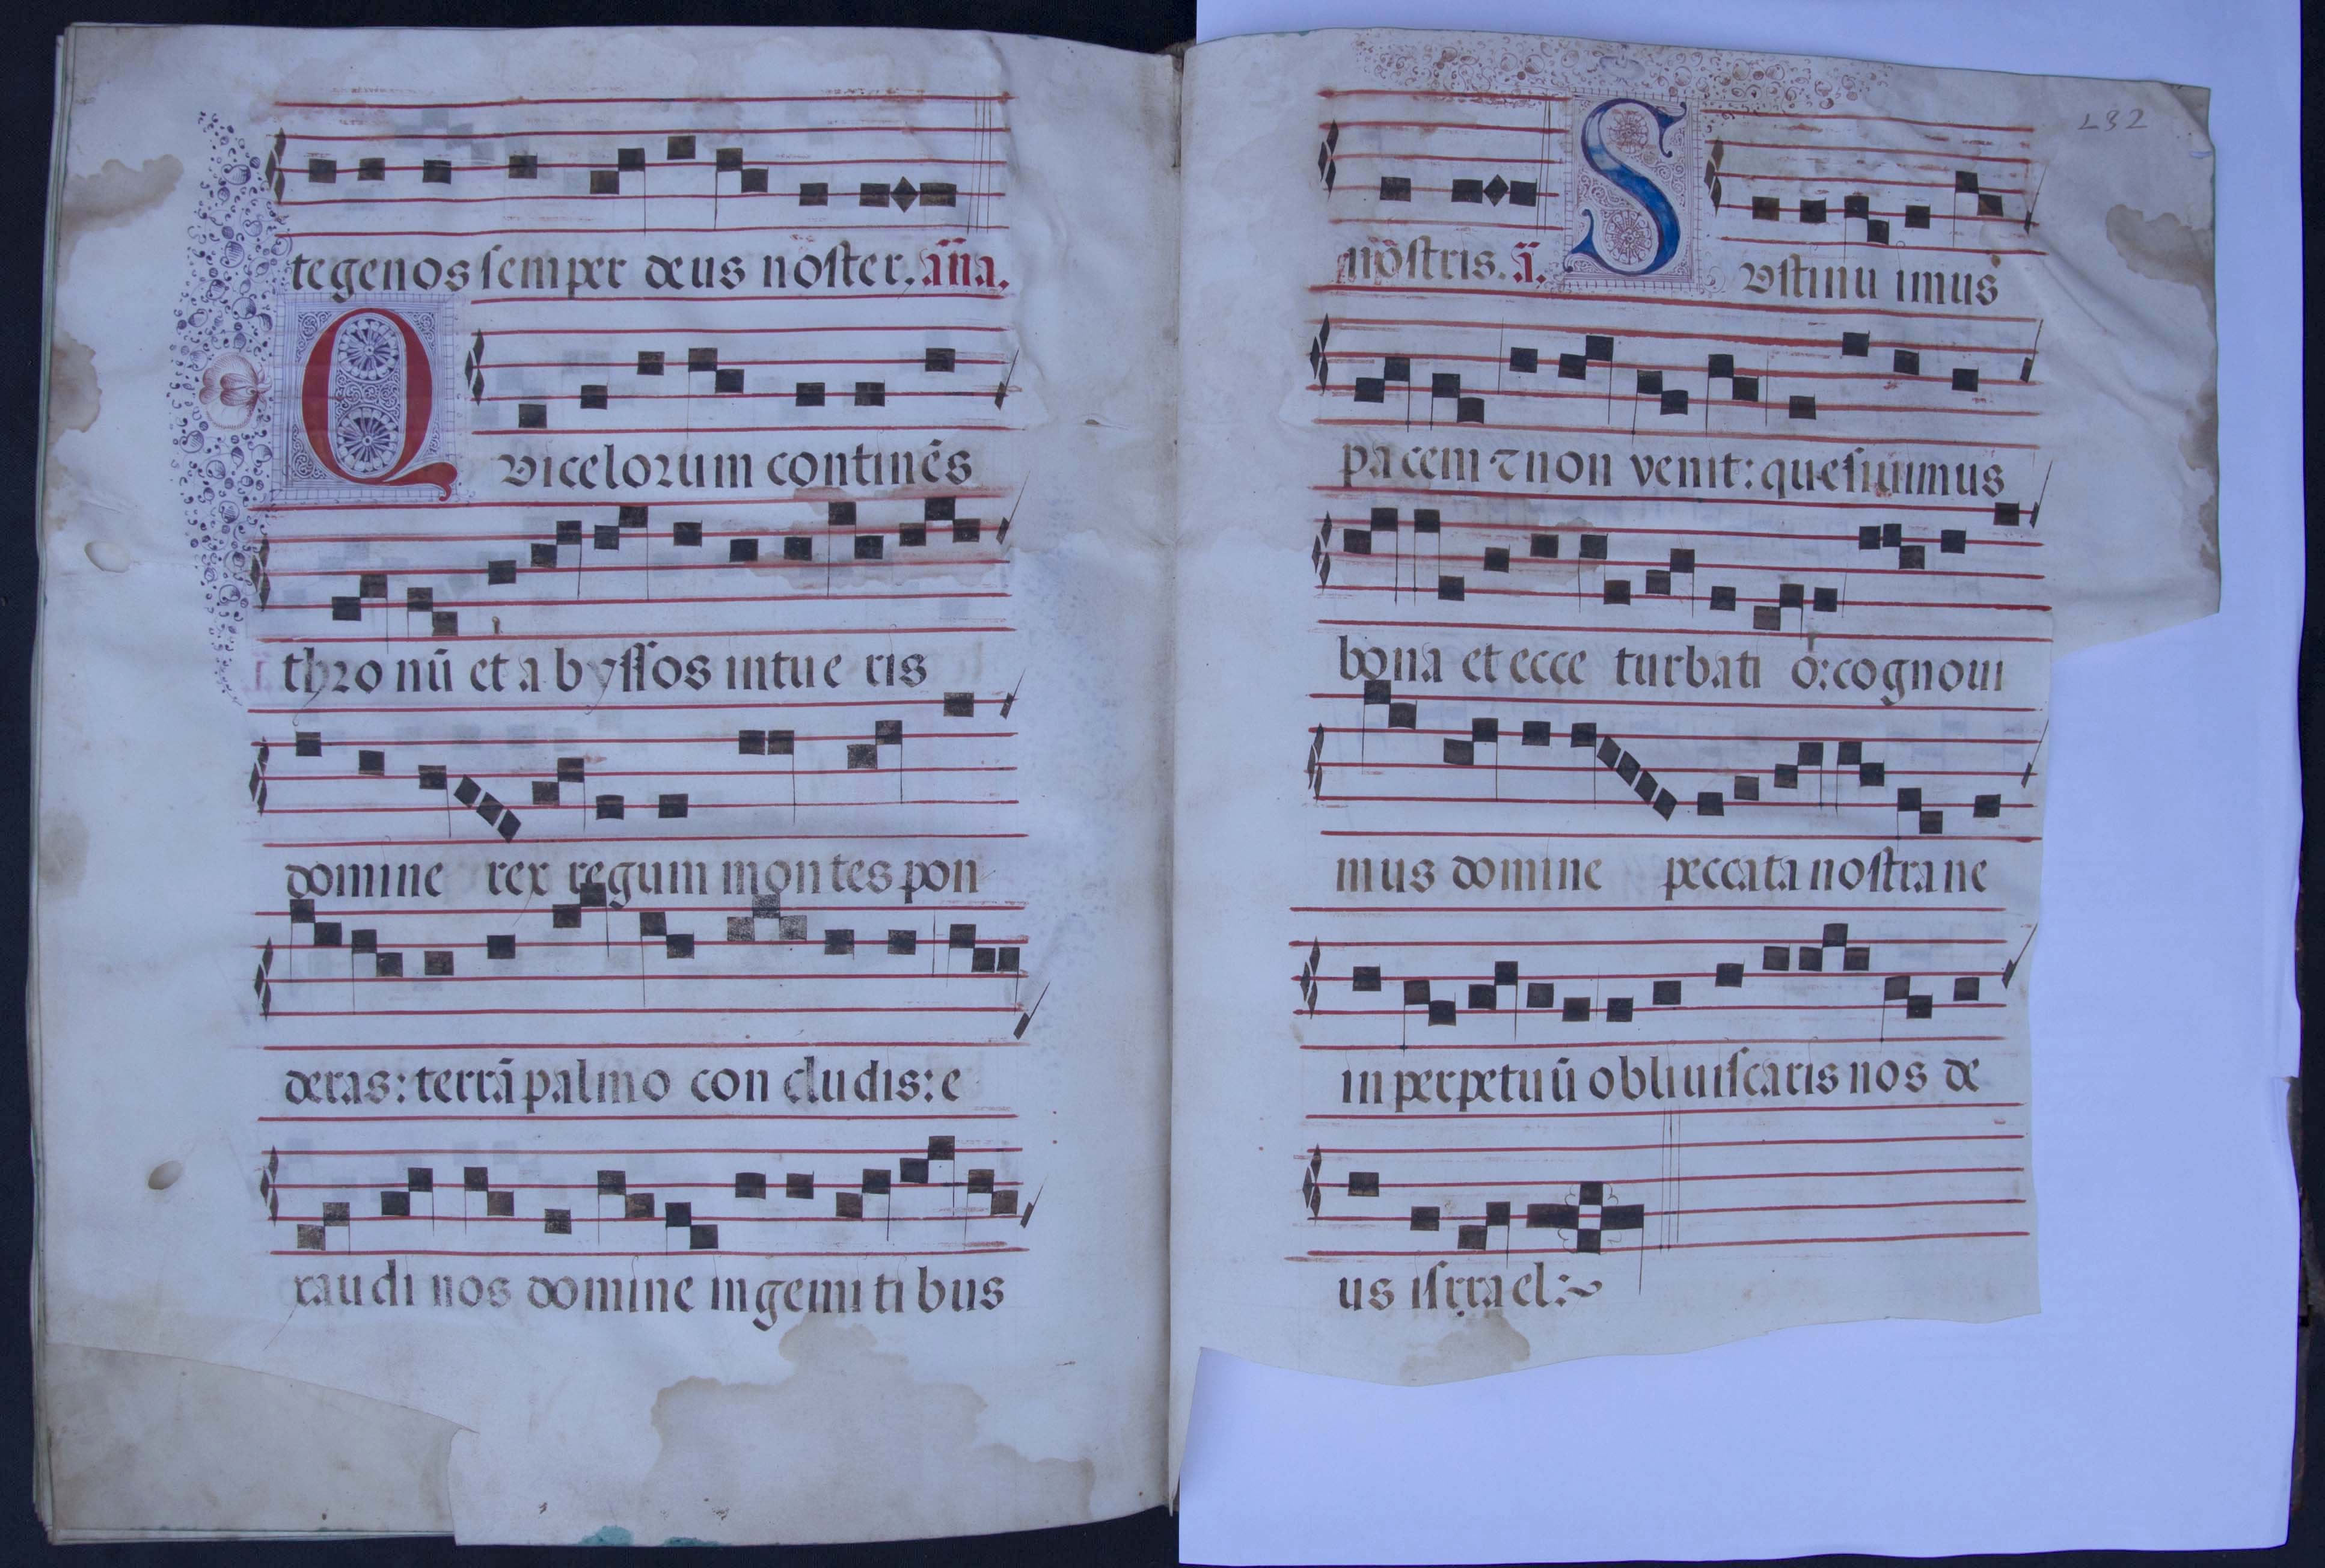 tegenos semper deus noster. āña.
Qui celorum continēs
thronū et abyssos intueris
domine rex regum montes pon
deras: terrā palmo concludis: e
xaudi nos domine in gemitibus
232
nostris. ā. Sustinuimus
pacem ⁊ non venit: quesiuimus
bona et ecce turbatio: cognoui
mus domine peccata nostra ne
in perpetuū obliuiscaris nos de
us isrrael:~